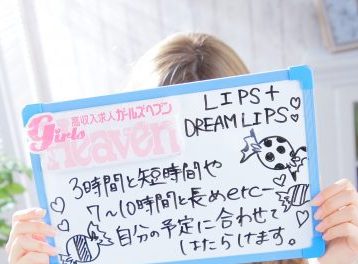 高収入求人ガールズヘブン
Girls
Heaven
LIPS+
DREAMLIPS♡
3時間と短時間や
7〜10時間と長めetc-
自分の予定に合わせて
はたらけます。